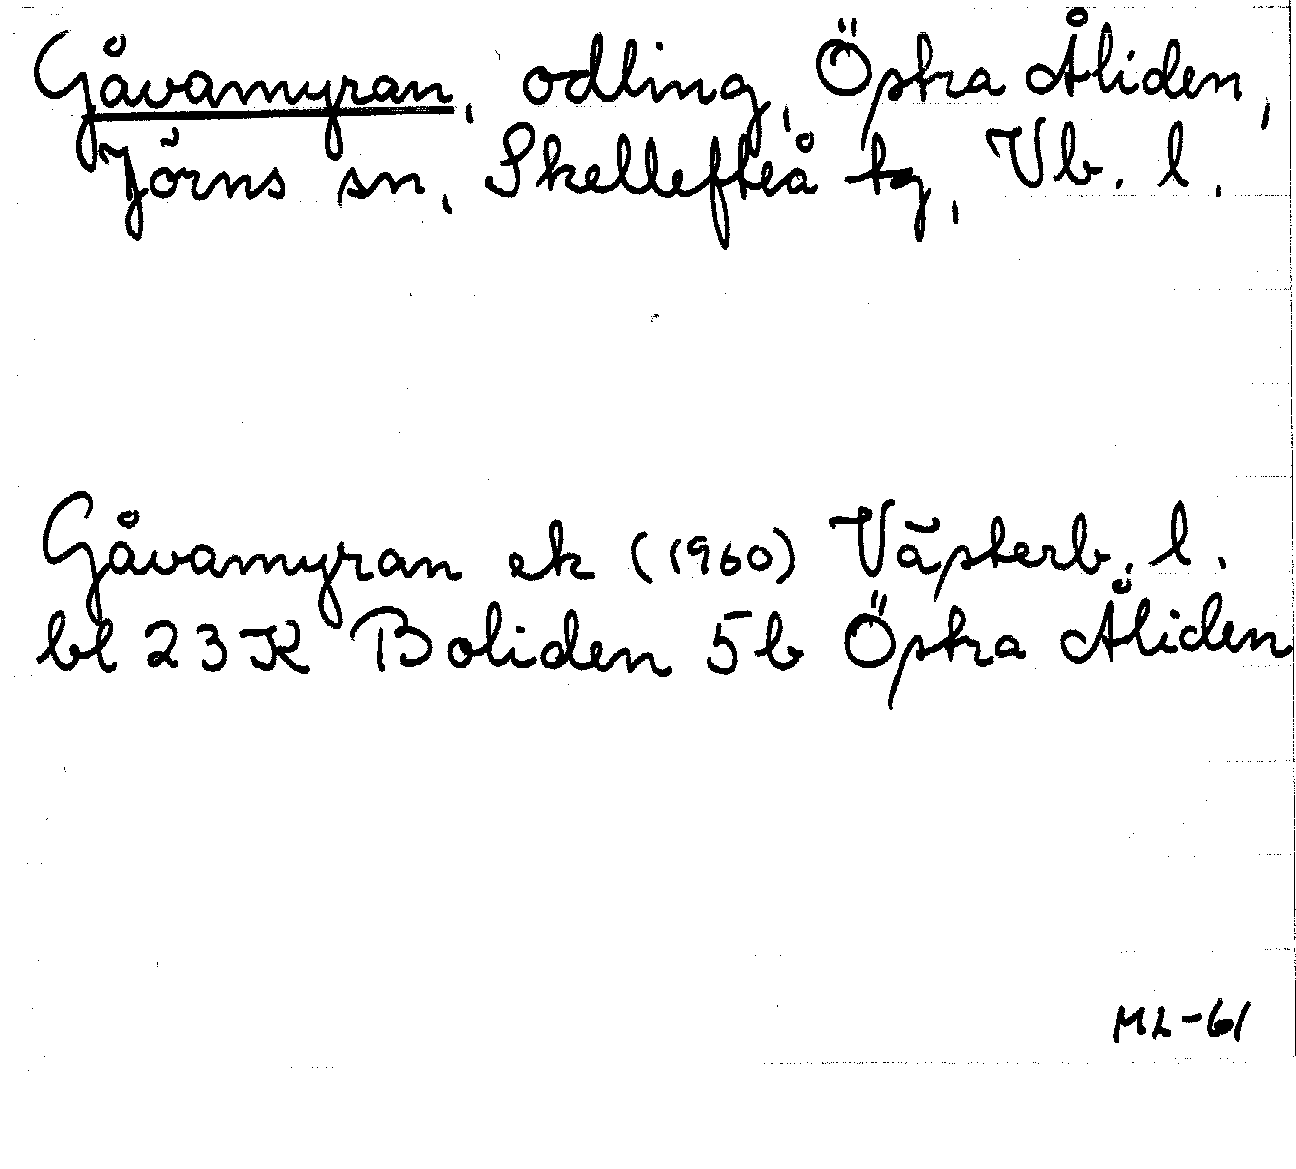 Gåvamyran, odling, Östra Åliden,
Jörns sn, Skellefteå tg, Vb. l.
Gåvamyran ek (1960) Västerb. l.
bl 23K Boliden 5b Östra Åliden
ML-61